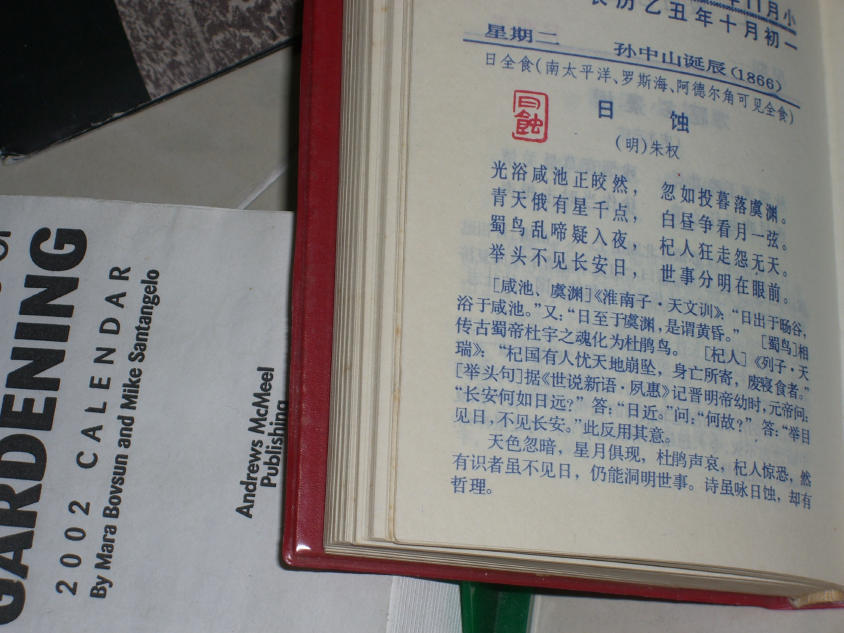 年11月小
农历乙丑年十月初一
星期二 孙中山诞辰(1866)
日全食(南太平洋、罗斯海、阿德尔角可见全食)
日蚀
日蚀
(明)朱权
光浴咸池正皎然， 忽如投暮落虞渊。
青天俄有星千点， 白昼争看月一弦。
蜀鸟乱啼疑入夜， 杞人狂走怨无天。
举头不见长安日， 世事分明在眼前。
[咸池、虞渊]《淮南子·天文训》：“日出于旸谷，
浴于咸池。”又：“日至于虞渊，是谓黄昏。” [蜀鸟]相
传古蜀帝杜宇之魂化为杜鹃鸟。 [杞人]《列子·天
瑞》：“杞国有人忧天地崩坠，身亡所寄，废寝食者。”
[举头句]据《世说新语·夙惠》记晋明帝幼时，元帝问：
“长安何如日远?” 答：“日近。”问：“何故?” 答：“举目
见日，不见长安。”此反用其意。
天色忽暗，星月俱现，杜鹃声哀，杞人惊恐，然
有识者虽不见日，仍能洞明世事。诗虽咏日蚀，却有
哲理。
GARDENING
2002 CALENDAR
By Mara Bovsun and Mike Santangelo
Andrews McMeel
Publishing